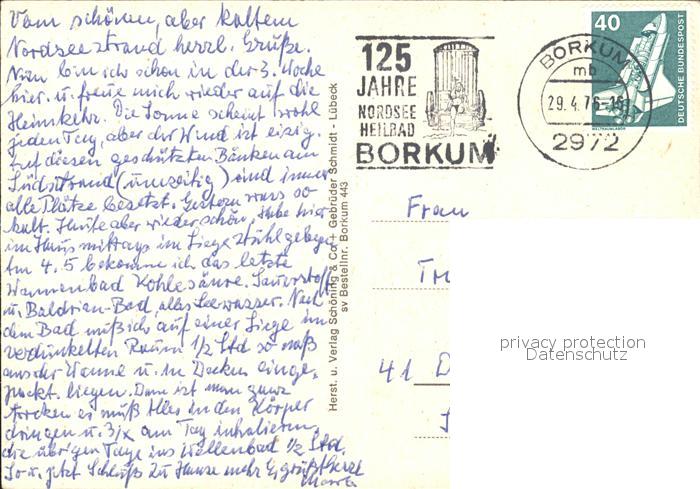 Vom schönen, aber kaltem
Nordseestrand herzl. Grüße.
Nun bin ich schon in der 3. Woche
hier u. freue mich wieder auf die
Heimkehr. Die Sonne scheint wohl
jeden Tag, aber der Wind ist eisig.
Auf diesen geschützten Bänken am
Südstrand (umseitig) sind immer
alle Plätze besetzt. Gestern wars so
kalt. Heute aber wieder schön, habe hier
im Haus mittags im Liegestuhl gelegen
Am 4.5 bekomme ich das letzte
Wannenbad Kohlesäure. Sauerstoff
u. Baldrian-Bad, alles Seewasser. Nach
dem Bad muß ich auf einer Liege im
verdunkelten Raum 1/2 Std so naß
aus der Wanne u. in Decken einge-
packt liegen. Dann ist man ganz
trocken es muß Alles in den Körper
dringen u. 3/x am Tag inhalieren,
die übrigen Tage ins Wellenbad 1/2 Std.
So u. jetzt Schluß zu Hause mehr Es grüßt herzl
Herst. u. Verlag Schöning & Co + Gebrüder Schmidt - Lübeck
sv Bestellnr. Borkum 443
125
JAHRE
NORDSEE
HEILBAD
BORKUM
BORKUM
mb
29.4.76-15
2972
40
DEUTSCHE BUNDESPOST
WELTRAUMLABOR
Frau
41 D
privacy protection
Datenschutz